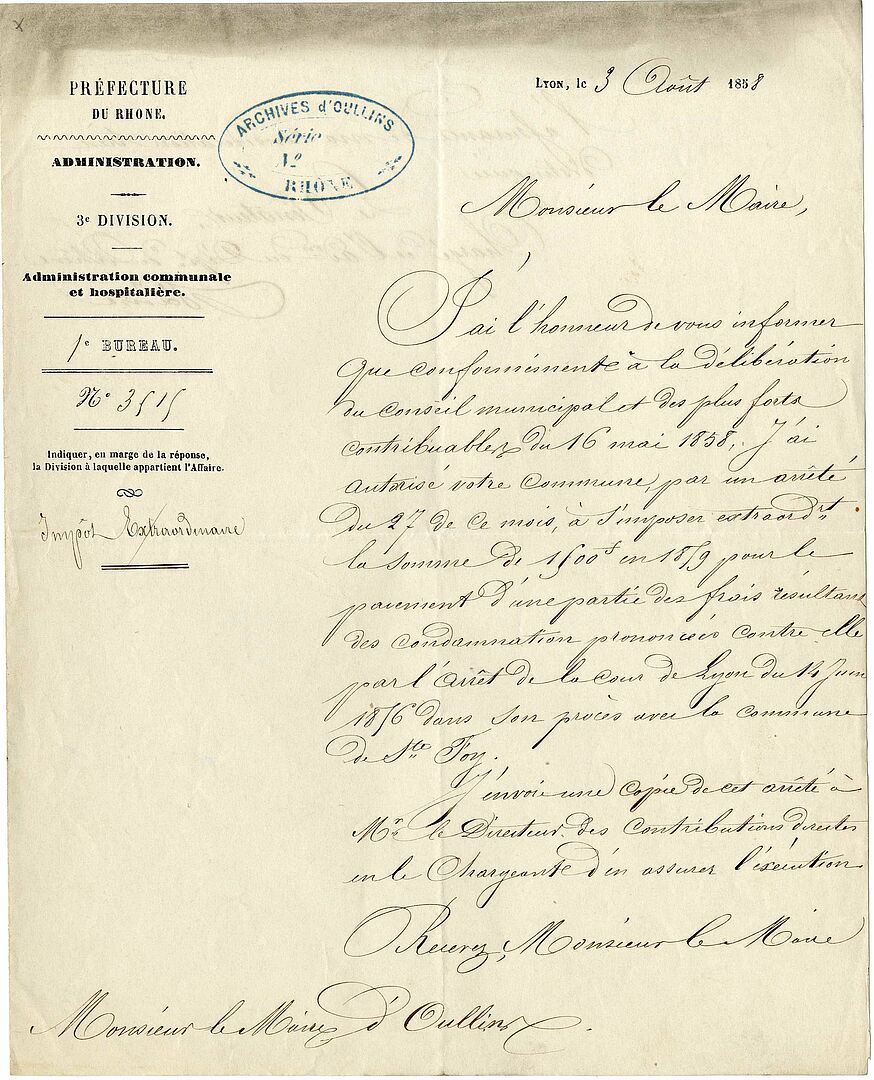 PRÉFECTURE
DU RHONE.
ADMINISTRATION.
3e DIVISION.
Administration communale
et hospitalière.
1e BUREAU.
No 3515
Indiquer, en marge de la réponse,
la Division à laquelle appartient l'Affaire.
Impôt Extraordinaire
ARCHIVES d'OULLINS
Série
No
RHÔNE
LYON, le 3 Août 1858
Monsieur le Maire,
J'ai l'honneur de vous informer
que conformément à la délibération
du Conseil municipal et des plus forts
contribuables du 16 mai 1858, J'ai
autorisé votre Commune, par un arrêté
du 27 de ce mois, à s'imposer extraordrt
la somme de 1500f en 1859 pour le
paiement d'une partie des frais résultant
des condamnation prononcées contre elle
par l'arrêt de la cour de Lyon du 14 Juin
1856 dans son procès avec la commune
de Ste Foy.
J'envoie une copie de cet arrêté à
Mr le Directeur des Contributions directes
en le Chargeant d'en assurer l'éxécution
Recevez, Monsieur le Maire
Monsieur le Maire d'Oullins.